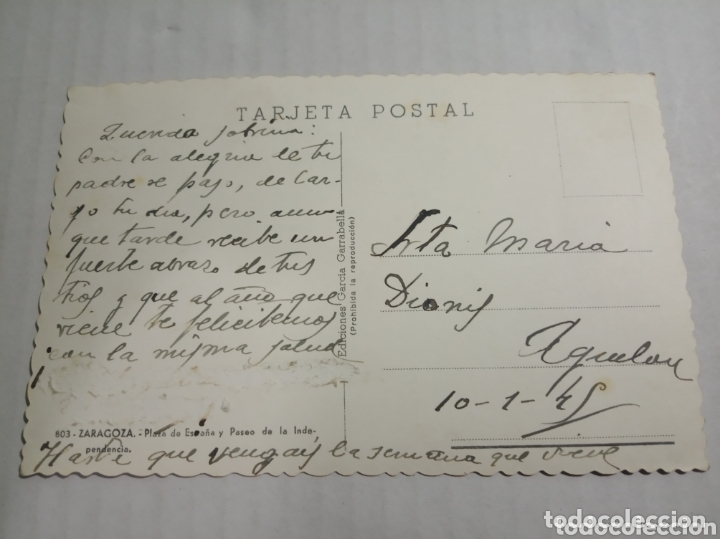 TARJETA POSTAL
Querida sobrina:
Con la alegria de tu
padre se paso, de lar-
go tu dia, pero aun-
que tarde recibe un
fuerte abrazo de tus
tios y que al año que
viene te felicitemos
con la misma salud
803 - ZARAGOZA. - Plaza de España y Paseo de la Inde-
pendencia.
que vengais la semana que viene
Ediciones García Garrabella
(Prohibida la reproducción)
Srta Maria
Dionis
10-1-45
todocoleccion.net